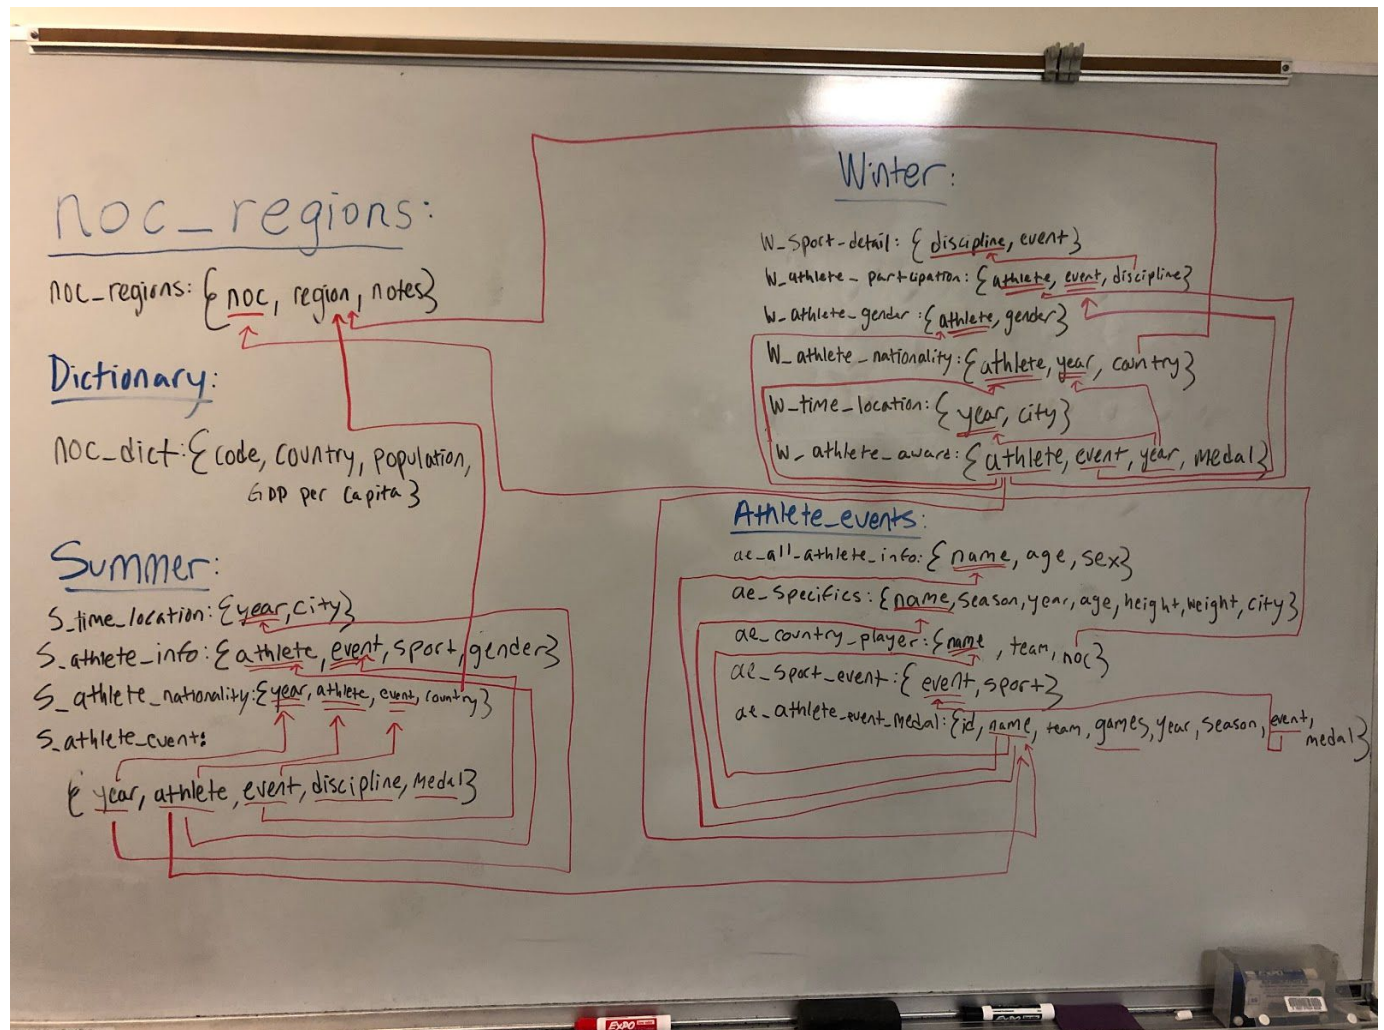 noc_regions:
noc_regions: {noc, region, notes}
Dictionary:
noc_dict: {code, country, population,
GDP per Capita}
Summer:
S_time_location: {year, city}
S_athlete_info: {athlete, event, sport, gender}
S_athlete_nationality: {year, athlete, event, country}
S_athlete_event:
{year, athlete, event, discipline, Medal}
Winter:
W_sport_detail: {discipline, event}
W_athlete_partcipation: {athlete, event, discipline}
W_athlete_gender: {athlete, gender}
W_athlete_nationality: {athlete, year, country}
W_time_location: {year, city}
W_athlete_award: {athlete, event, year, medal}
Athlete_events:
ae_all_athlete_info: {name, age, sex}
ae_specifics: {name, season, year, age, height, weight, city}
ae_country_player: {name, team, noc}
ae_sport_event: {event, sport}
ae_athlete_event_medal: {id, name, team, games, year, season, event,
medal}
EXPO
EXPO